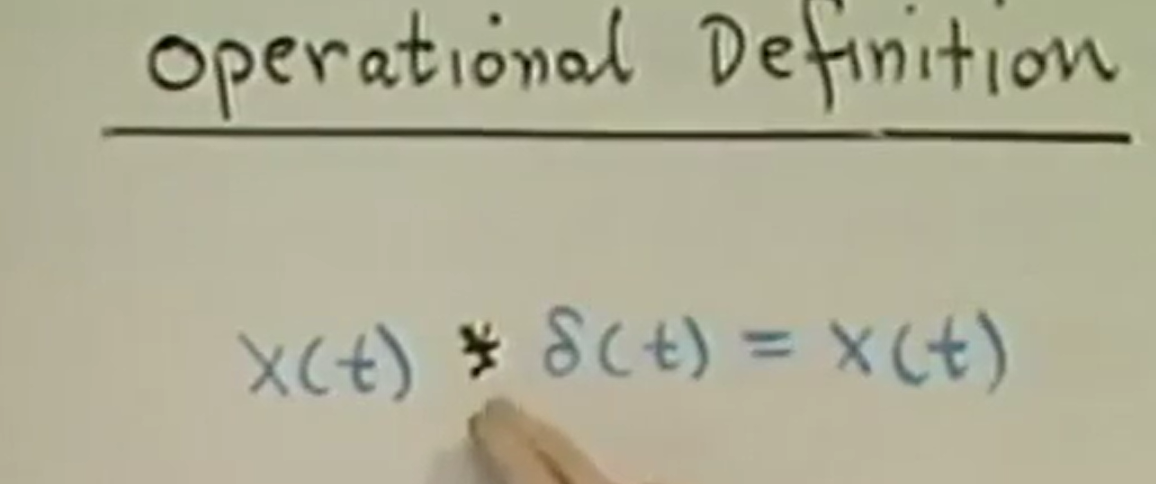 Operational Definition
x(t) * δ(t) = x(t)